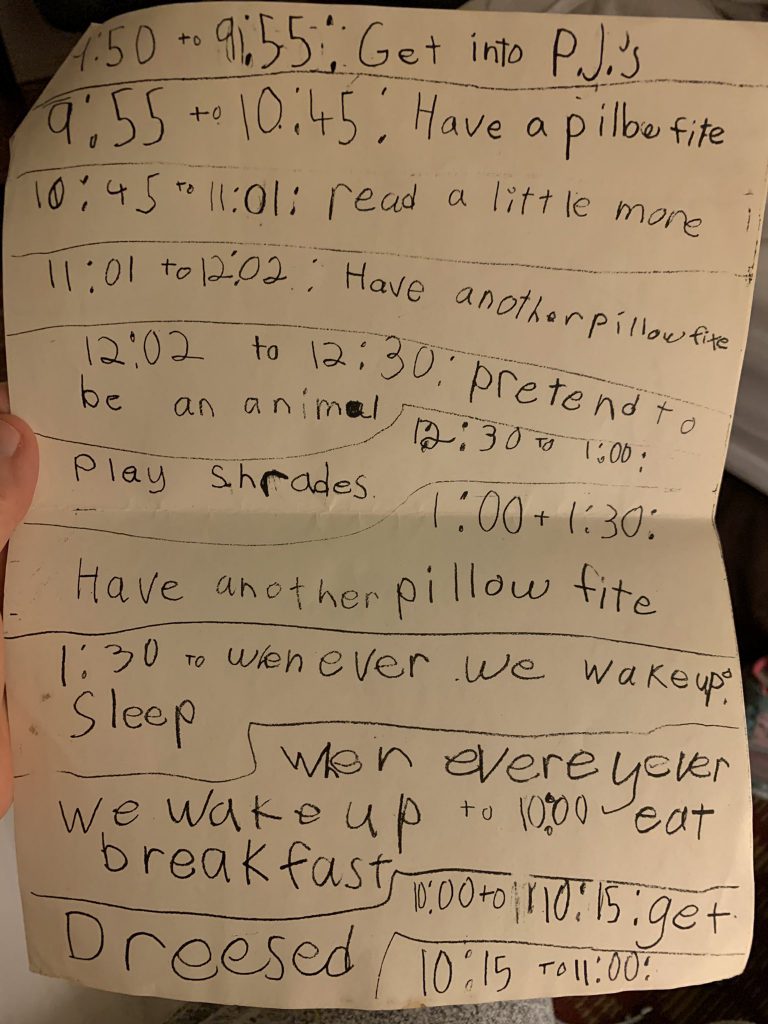 9:50 to 9:55: Get into P.J.'s
9:55 to 10:45: Have a pilbe fite
10:45 to 11:01: read a little more
11:01 to 12:02: Have another pillow fite
12:02 to 12:30: pretend to
be an animal
12:30 to 1:00:
Play shrades.
1:00 + 1:30:
Have another pillow fite
1:30 to wen ever we wake up:
Sleep
wen evereyever
we wake up to 10:00 eat
breakfast
10:00 to 10:15: get
Dreesed
10:15 to 11:00: